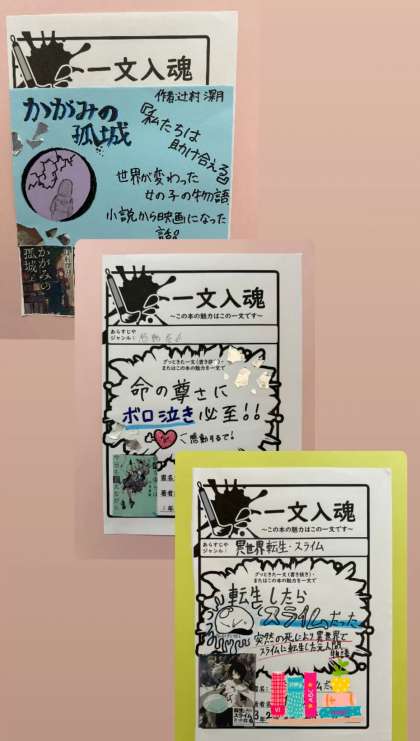 一文入魂
かがみの
孤城
作者:辻村 深月
『私たちは
助け合える』
世界が変わった
女の子の物語
小説から映画になった
話。
かがみの
孤城
一文入魂
～この本の魅力はこの一文です～
あらすじや
ジャンル：
グッときた一文(書き抜き)・
またはこの本の魅力を一文で
命の尊さに
ボロ泣き必至!!
感動するで!
一文入魂
～この本の魅力はこの一文です～
あらすじや
ジャンル：
異世界転生・スライム
グッときた一文(書き抜き)・
またはこの本の魅力を一文で
転生したら
スライムだった
突然の死により異世界で
スライムに転生した元人間
転生したら
スライム
だった件